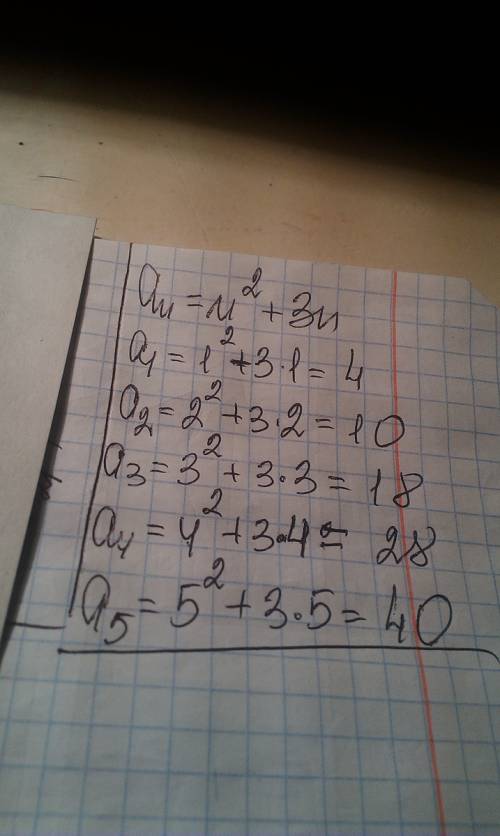 aₙ = n² + 3n
a₁ = 1² + 3·1 = 4
a₂ = 2² + 3·2 = 10
a₃ = 3² + 3·3 = 18
a₄ = 4² + 3·4 = 28
a₅ = 5² + 3·5 = 40